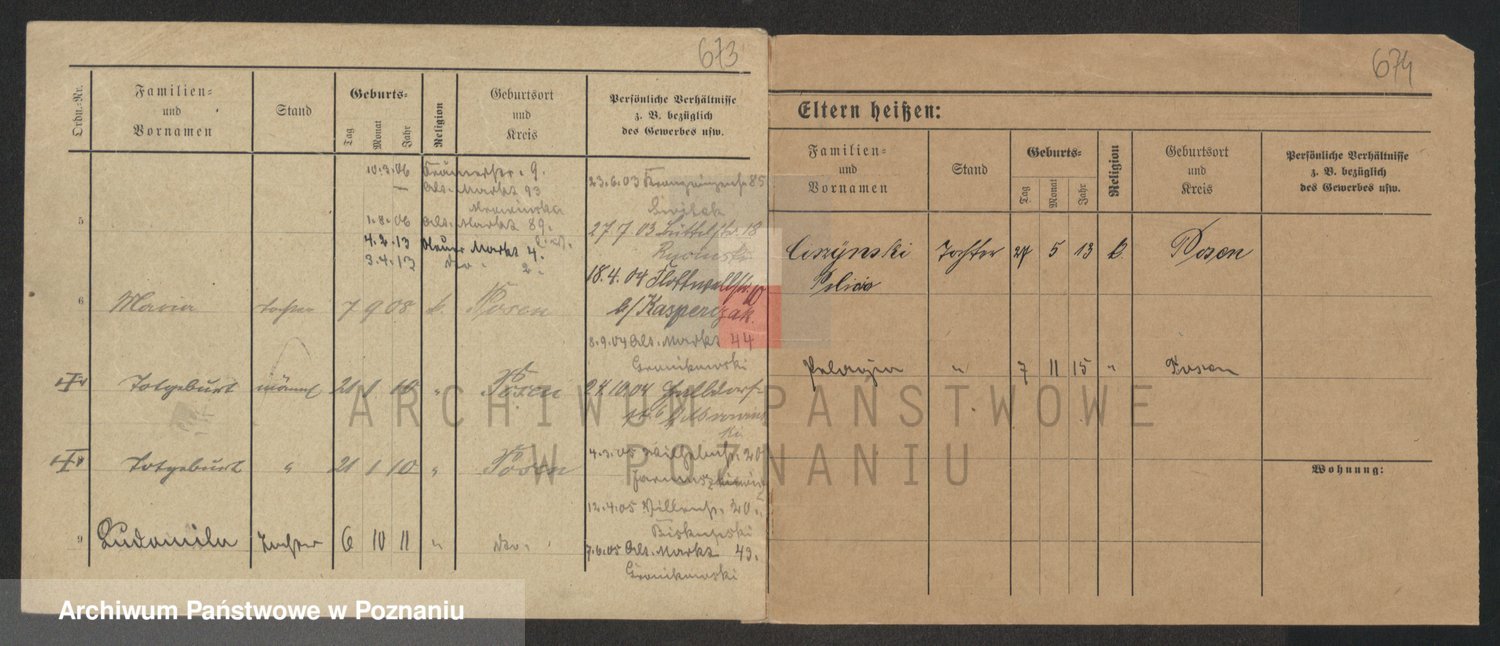 673
Ordn.-Nr.
Familien-
und
Vornamen
Stand
Geburts-
Tag
Monat
Jahr
Religion
Geburtsort
und
Kreis
Persönliche Verhältnisse
z. B. bezüglich
des Gewerbes usw.
10.3.06 Krämerstr. 9.
Alt. Markt 93
5
1.8.06 Alt. Markt 89.
4.2.13 Neuer Markt 4.
3.4.13 dto. 2.
23.6.03 85
27.7.03 18
18.4.04 Flottwellstr. 10
b/ Kasperczak.
8.9.04 Alt. Markt 44
Gronikowski
24.10.04
4.3.05 Wilhelmstr. 20
12.4.05 20
Biskupski
7.6.05 Alt. Markt 43.
Gronikowski
6 Maria Tochter 7 9 08 k. Posen
7 Totgeburt männl 21 1 10 " Posen
8 Totgeburt " 21 1 10 " Posen
9 Ludomila Tochter 6 10 11 " dto.
674
Eltern heißen:
Familien-
und
Vornamen
Stand
Geburts-
Tag
Monat
Jahr
Religion
Geburtsort
und
Kreis
Persönliche Verhältnisse
z. B. bezüglich
des Gewerbes usw.
Ciszynski Tochter 27 5 13 k. Posen
Felicia
Pelagia " 7 11 15 " Posen
Wohnung:
ARCHIWUM PAŃSTWOWE
W POZNANIU
Archiwum Państwowe w Poznaniu